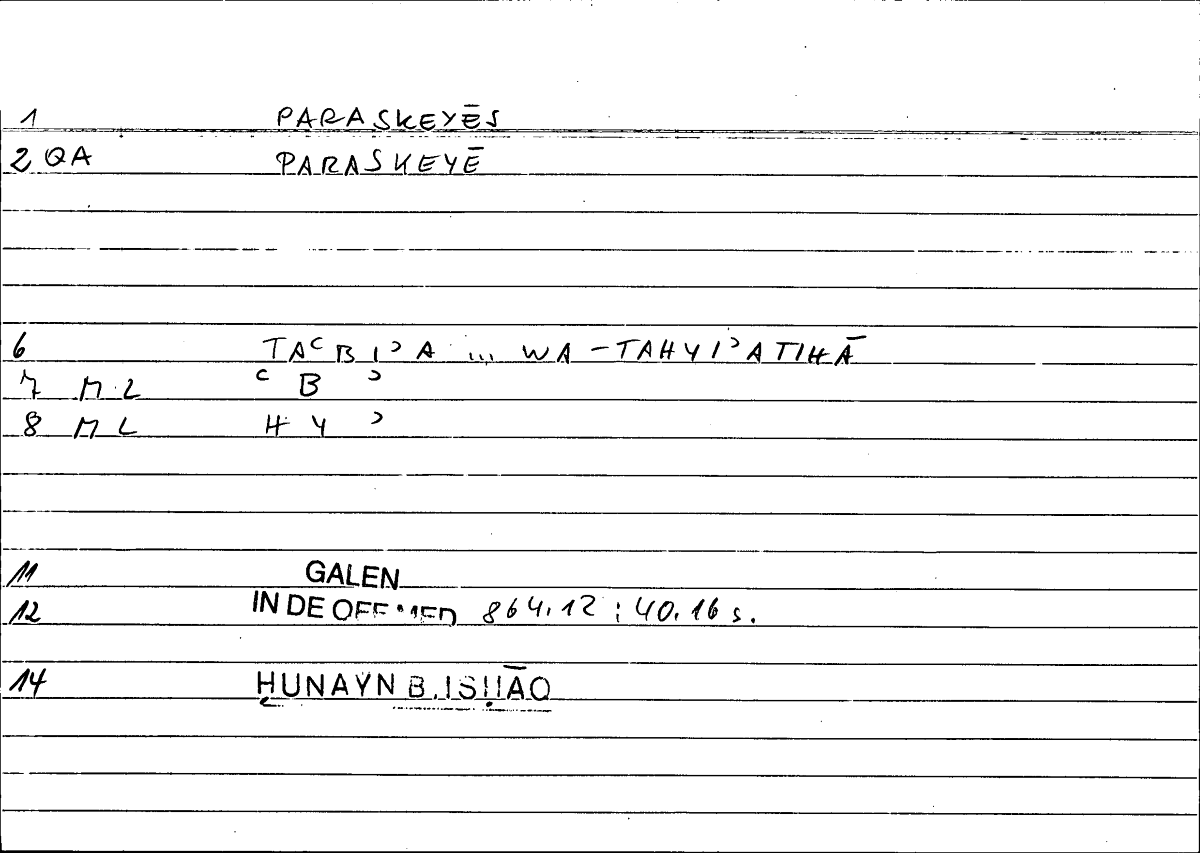 1 PARASKEYĒS
2 QA PARASKEYĒ
6 TAʿBIʾA ... WA-TAHYIʾATIHĀ
7 ML ʿ B ʾ
8 ML H Y ʾ
11 GALEN
12 IN DE OFF MED 864.12 : 40.16 s.
14 ḤUNAYN B. ISḤĀQ